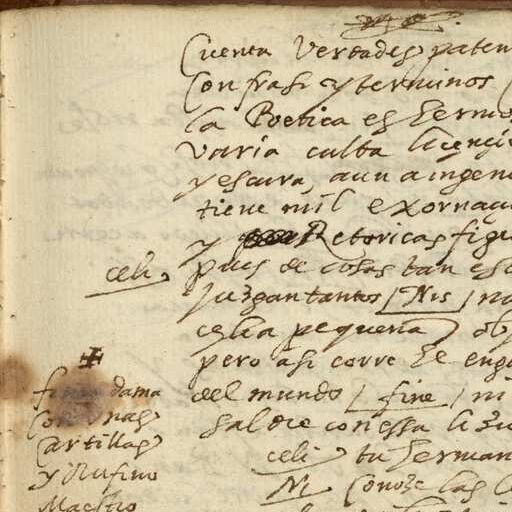 Cuenta Verdades paten
Con frasi y terminos
la Poetica es hermo
varia culta licençi
y escura, aun a ingeni
tiene mil exornaci
y Retoricas figu
celi. pues de cosas tan esc
Juzgan tantos / Nis / no
celia pequeña
pero asi corre el enga
del mundo / fine / ni
Salore con essa
celi tu herman
Ni Conoze las
dama
Con unas
Cartillas
y Rufino
Maestro